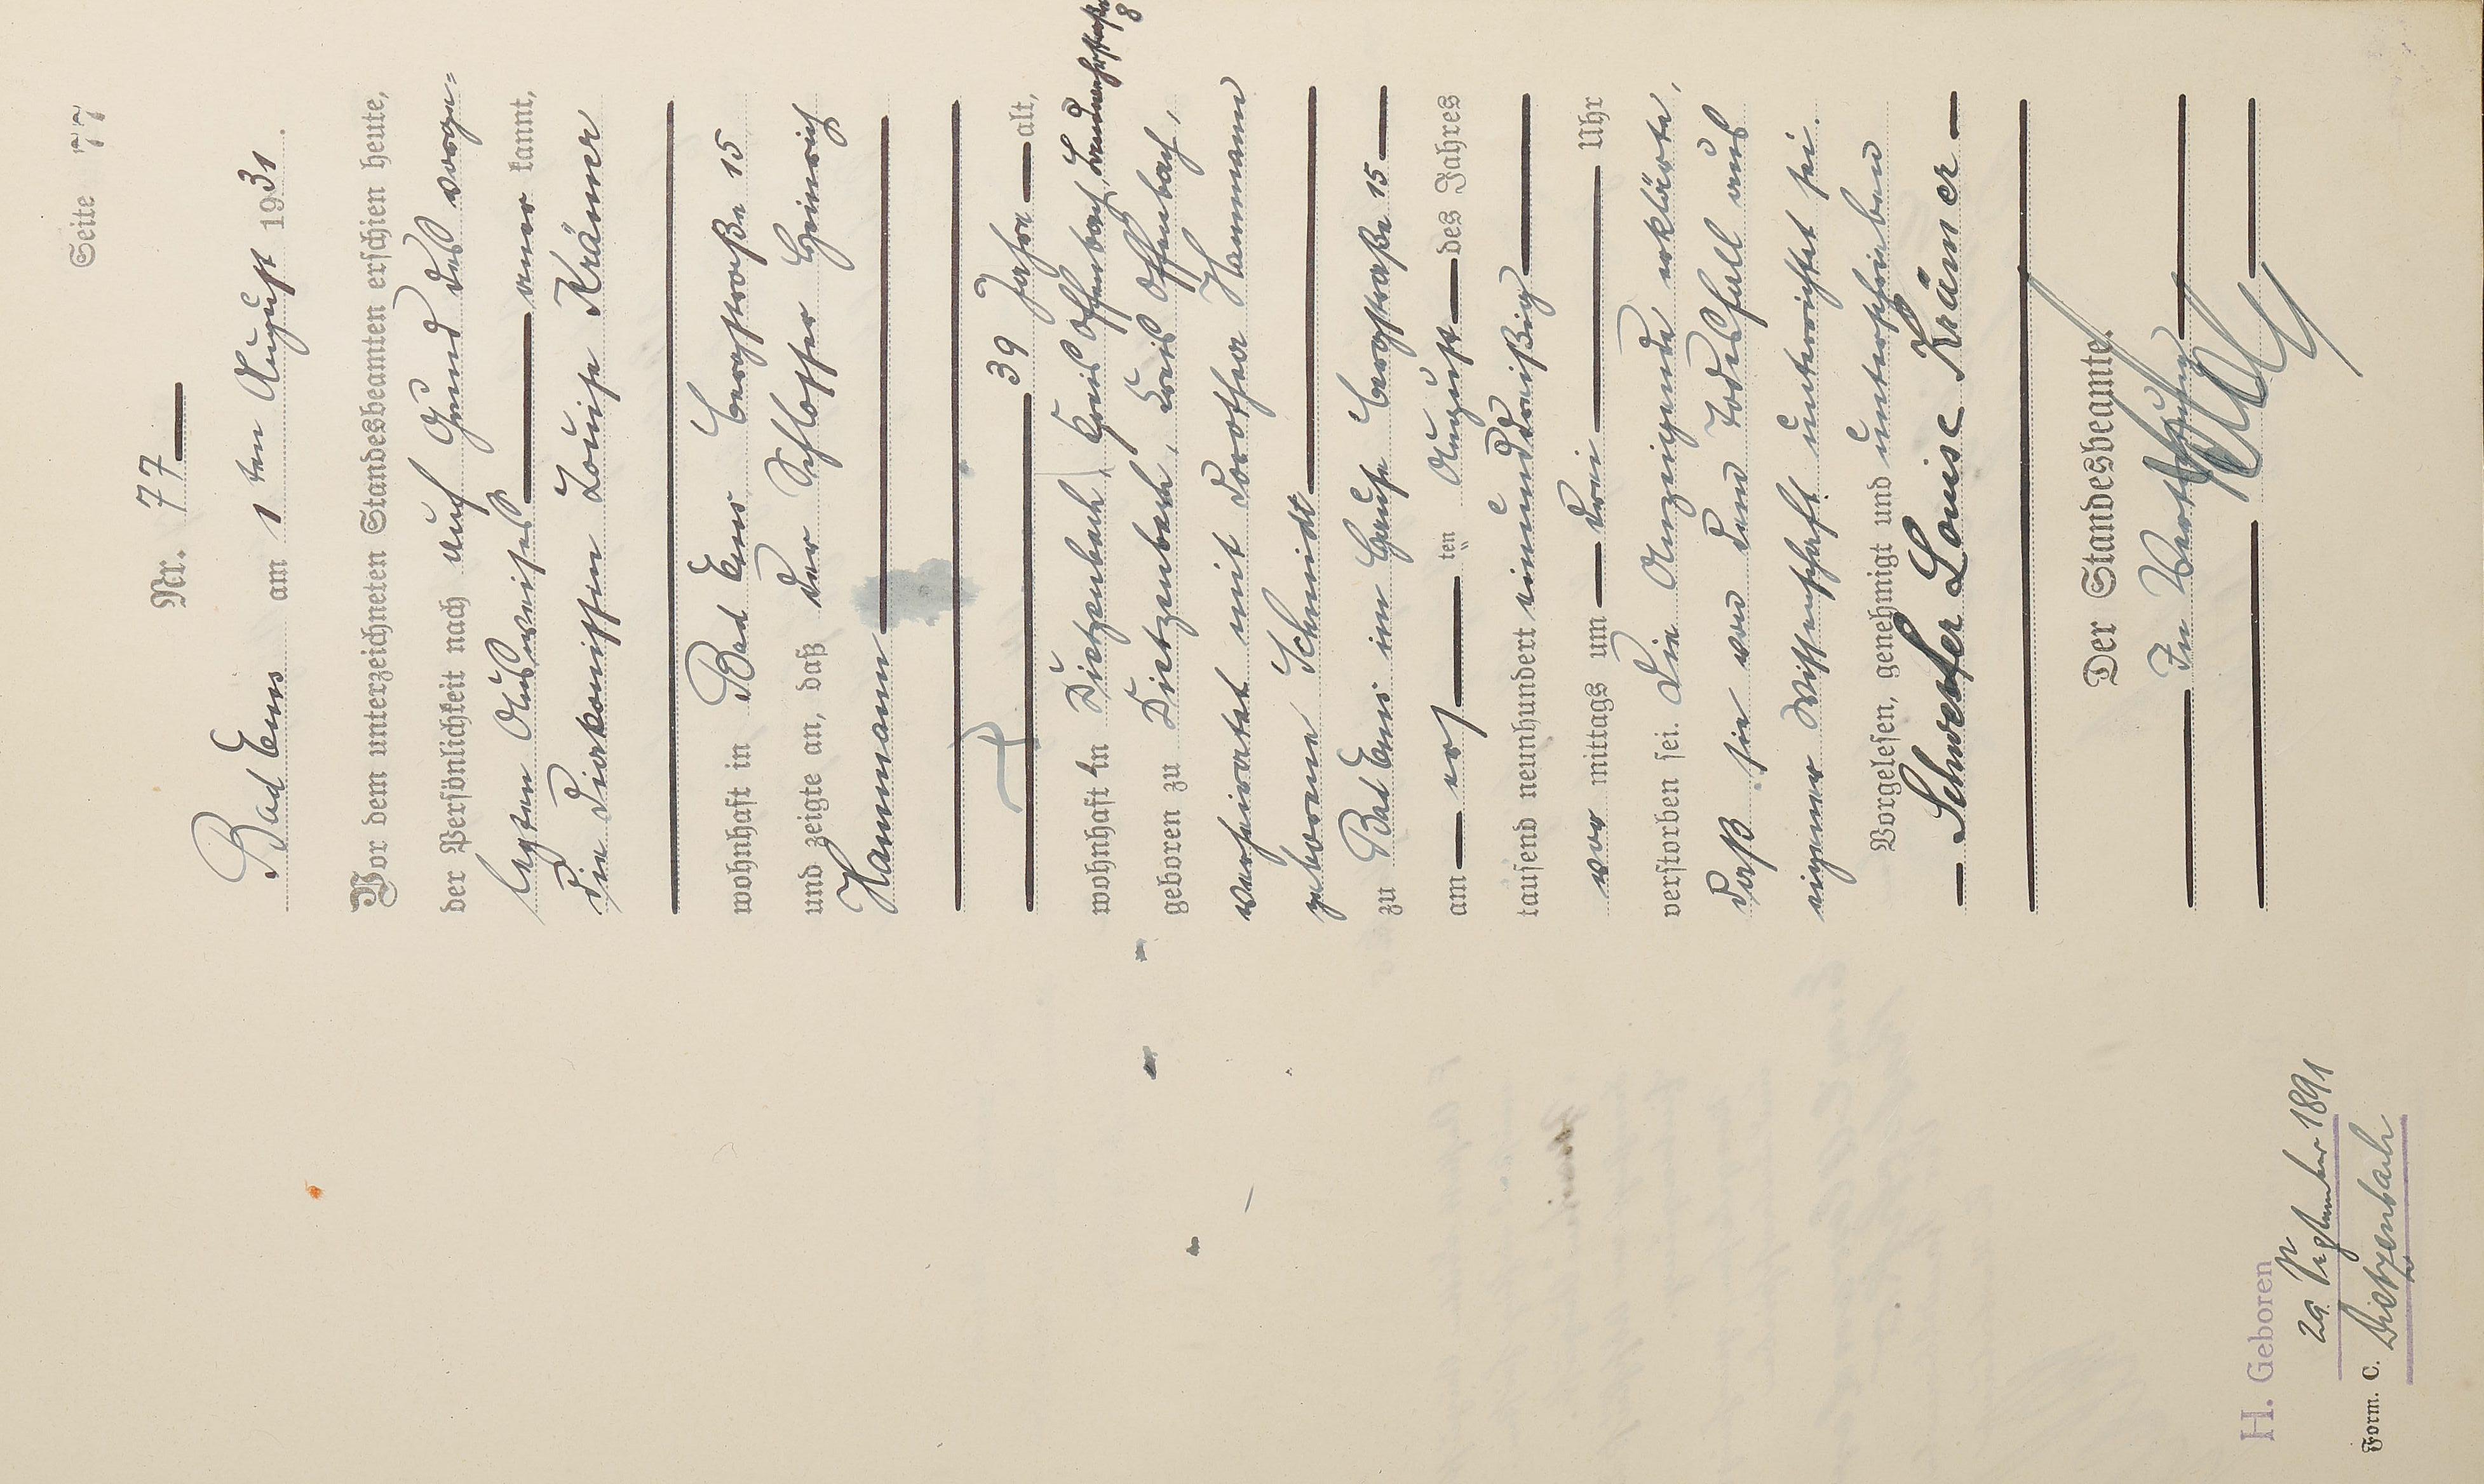 Seite 77
Nr. 77
Bad Ems am 1ten August 1931.
Vor dem unterzeichneten Standesbeamten erschien heute,
der Persönlichkeit nach auf Grund des vorge=
legten Ausweises anerkannt,
die Diakonissin Louise Krämer
wohnhaft in Bad Ems Bergstraße 15
und zeigte an, daß der Schlosser Heinrich
Hammann
39 Jahre alt,
wohnhaft in Dietzenbach, Kreis Offenbach, 8
geboren zu Dietzenbach, Kreis Offenbach,
verheiratet mit Dorothea Hammann
geborene Schmidt
zu Bad Ems im Hause Bergstraße 15
am ersten August des Jahres
tausend neunhundert einunddreißig
vor mittags um drei Uhr
verstorben sei. Die Anzeigende erklärte,
daß sie von dem Todesfall aus
eigener Wissenschaft unterrichtet sei.
Vorgelesen, genehmigt und unterschrieben
Schwester Louise Krämer
Der Standesbeamte.
In Vertretung
H. Geboren
29. September 1891
Dietzenbach
Form. C.